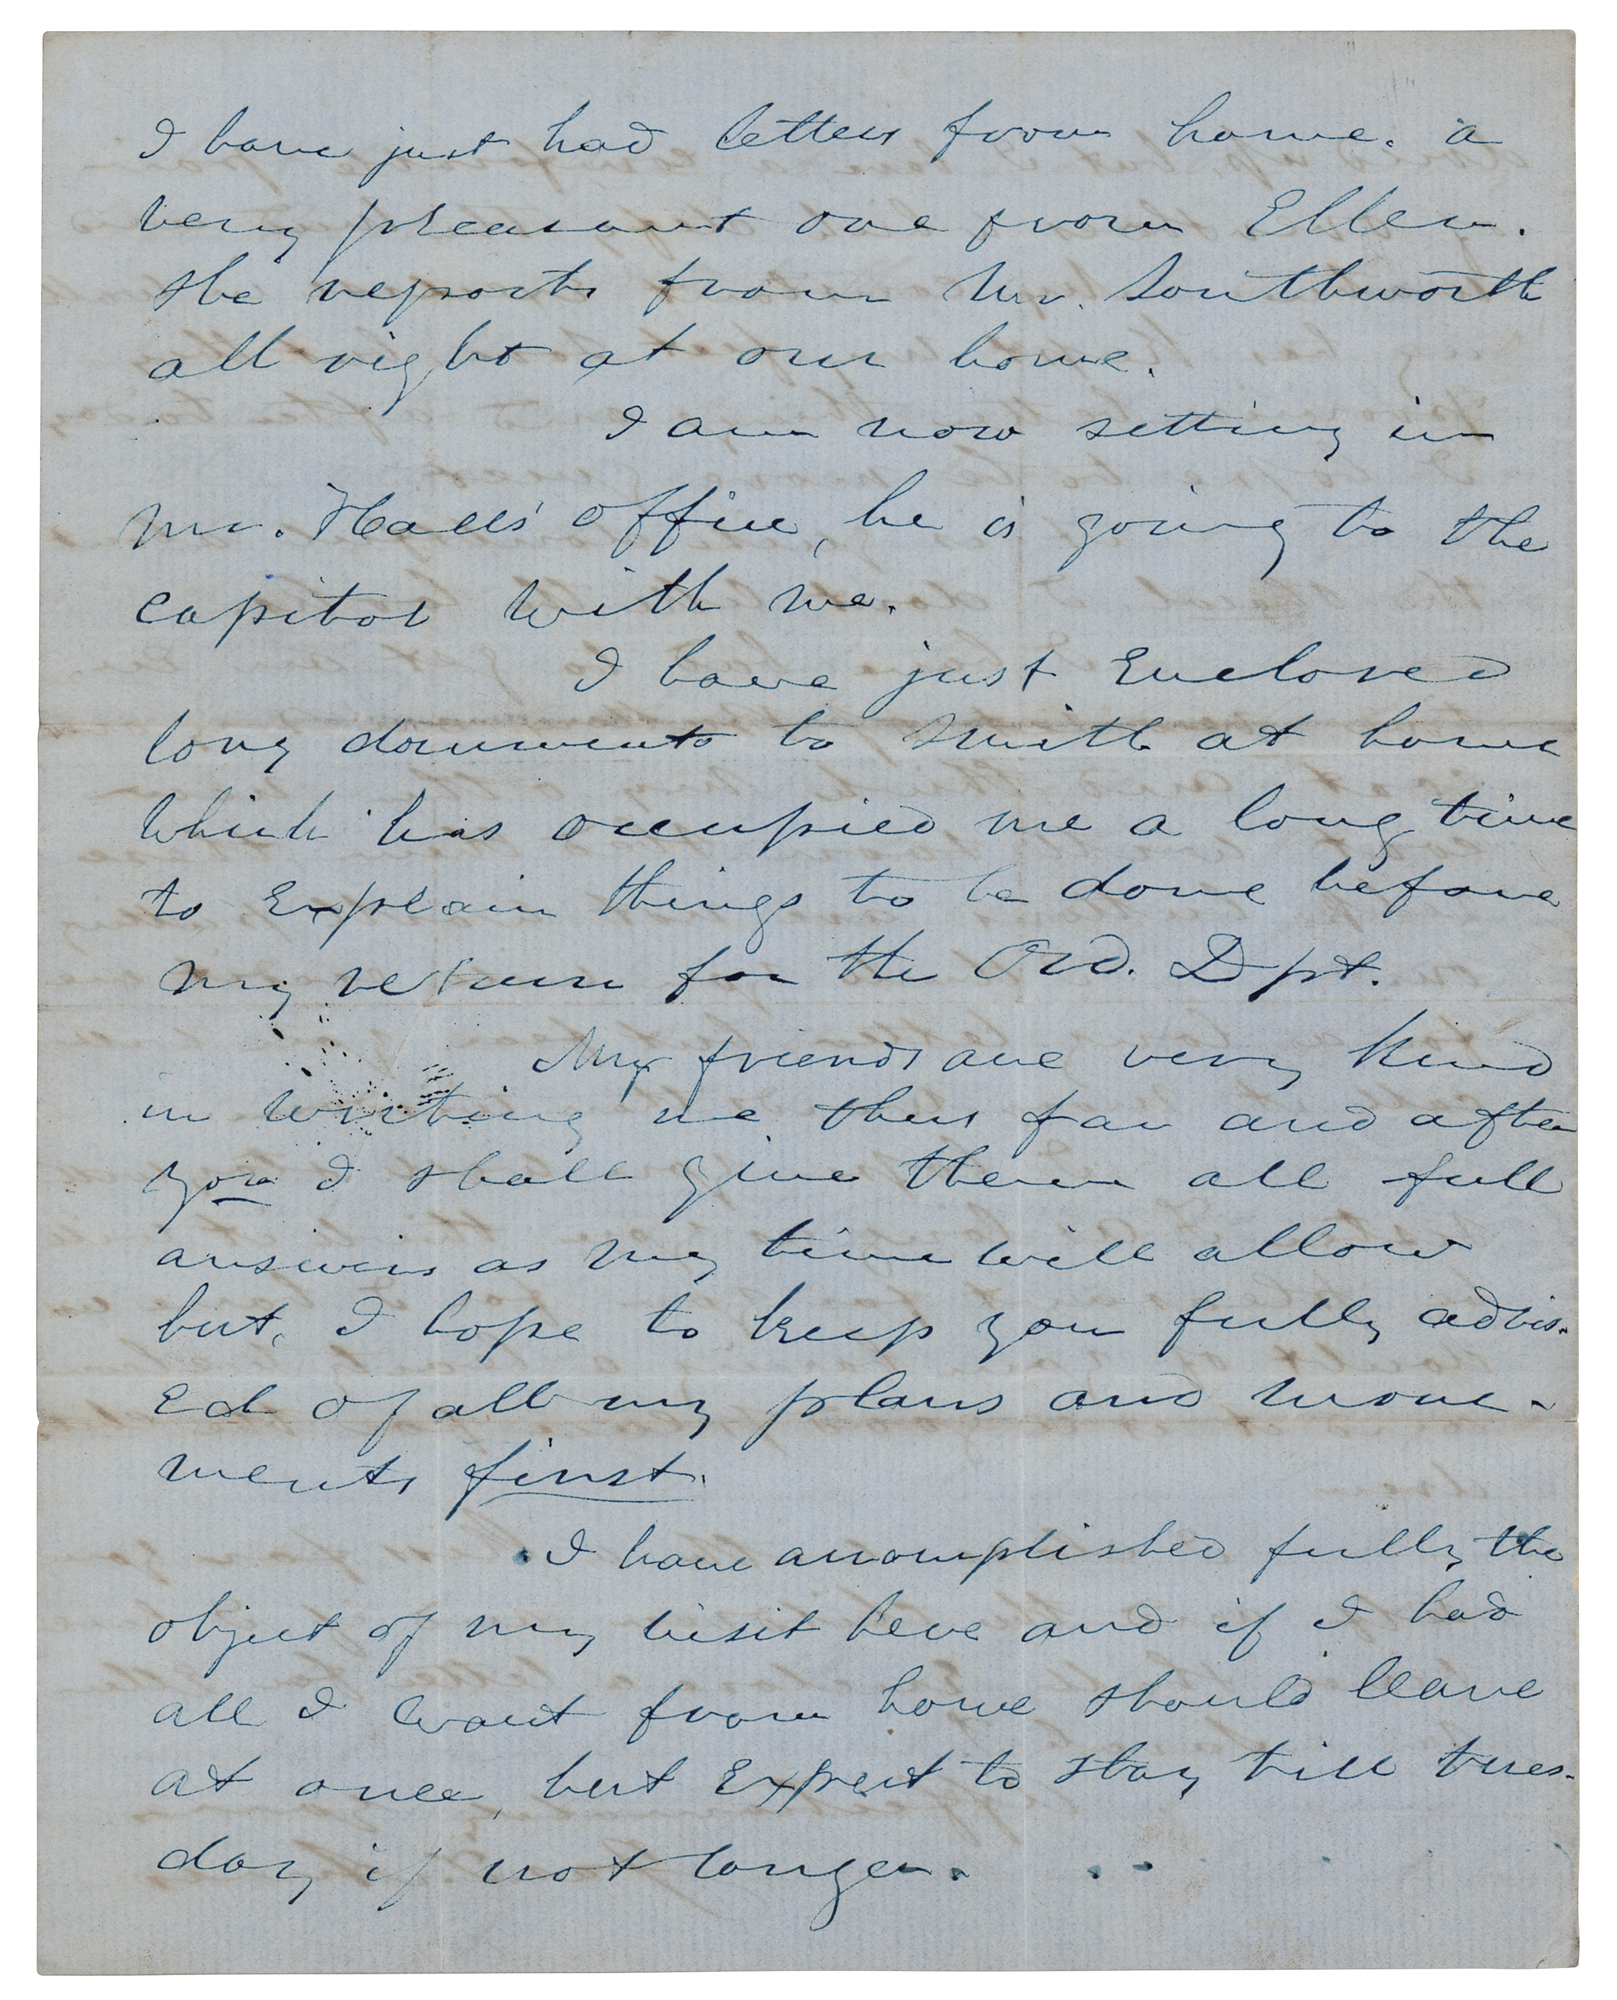 I have just had letters from home. a
very pleasant one from Ellen.
She reports from Mr. Southworth
all right at our home.
I am now setting in
Mr. Hall's office, he is going to the
capitol with me.
I have just Enclosed
long documents to Smith at home
which has occupied me a long time
to Explain things to be done before
my return for the Ord. Dpt.
My friends are very kind
in writing me thus far and after
you I shall give them all full
answers as my time will allow
but, I hope to keep you fully advis-
Ed of all my plans and move-
ments first.
I have accomplished fully the
object of my visit here and if I had
all I want from home should leave
at once, but Expect to stay till tues-
day if not longer.